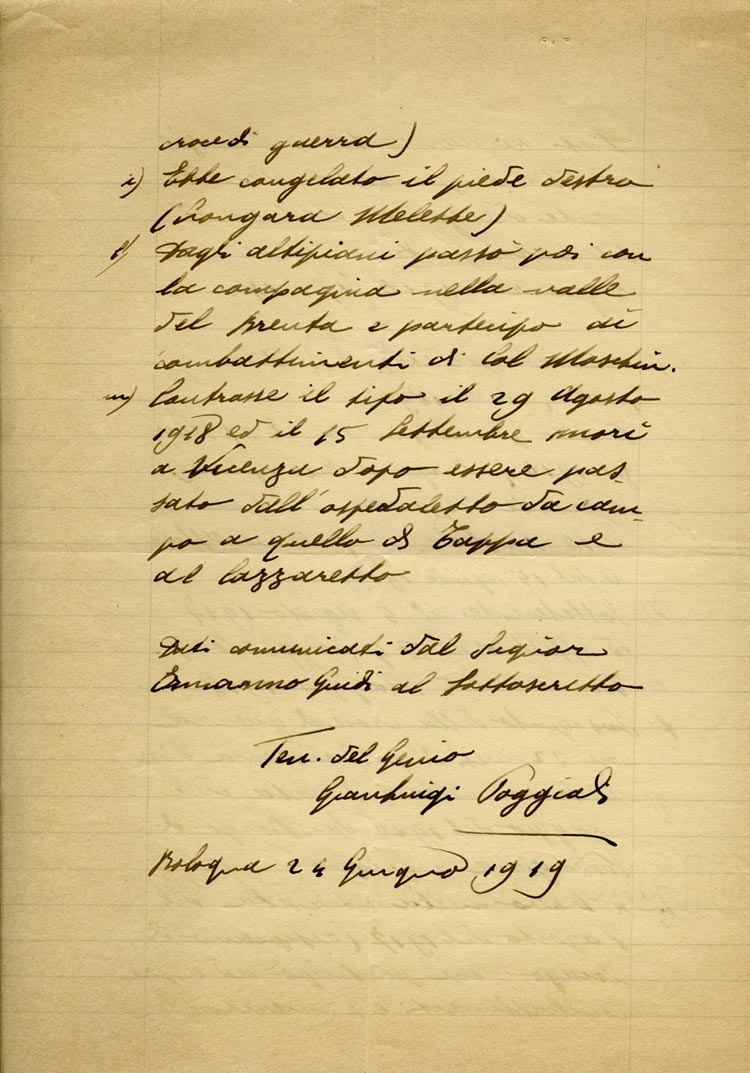 croce di guerra)
i) Ebbe congelato il piede destro
(Longara Melette)
l) Dagli altipiani passò poi con
la compagina nella valle
del Brenta e partecipo di
combattimenti di Col Moschin.
m) Contrasse il tifo il 29 Agosto
1918 ed il 15 Settembre morì
a Vicenza dopo essere pas-
sato dall'ospedaletto da cam-
po a quello di Tappa e
al lazzaretto
Dati comunicati dal Signor
Ermanno Guidi al sottoscritto
Ten. del Genio
Gianluigi Poggiali
Bologna 24 Giugno 1919